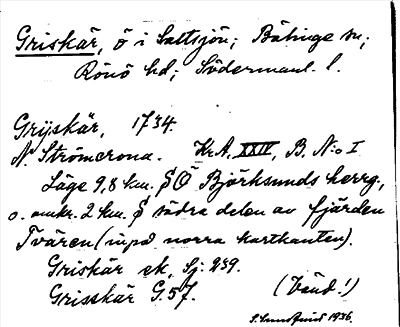 Griskär, ö i Saltsjön; Bälinge sn;
Rönö hd; Södermanl. l.
Grijskär, 1734.
N. Strömcrona. Kr.A. XXIV, B. N:o I
Läge 9,8 km. SÖ Björksunds herrg,
o. omkr. 2 km. S södra delen av fjärden
Tvären (inpå norra kartkanten).
Griskär ek. Sj. 239.
Grisskär G. 57.
(Vänd!)
1936.